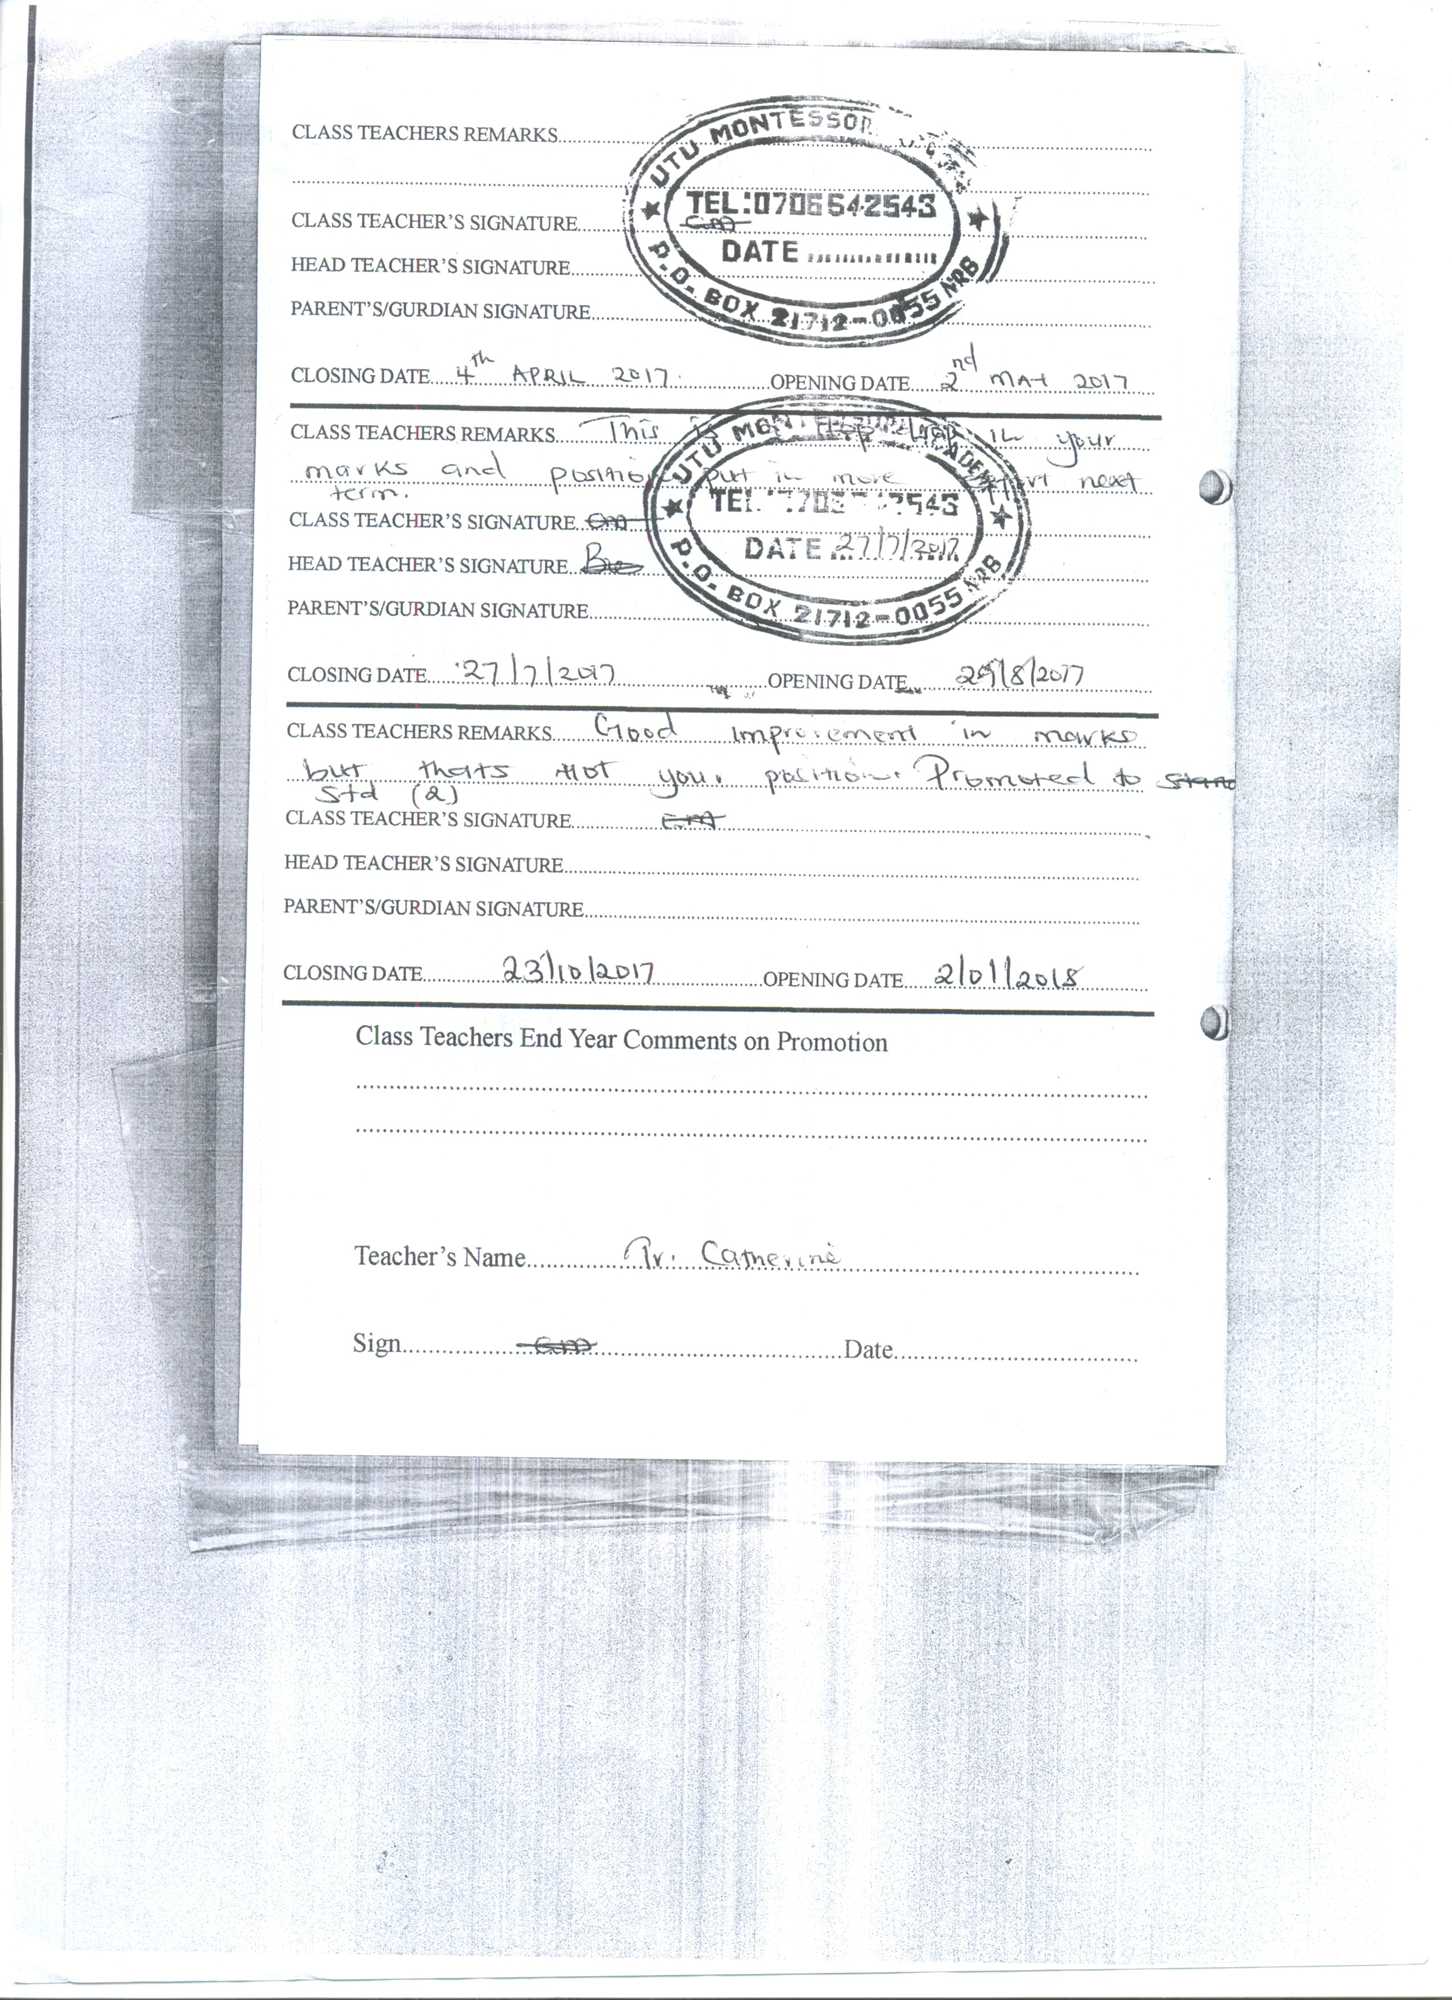 CLASS TEACHERS REMARKS
UTU MONTESSOR
TEL:0706542543
CLASS TEACHER'S SIGNATURE
DATE
HEAD TEACHER'S SIGNATURE
P.O. BOX 21712-0055 NRB
PARENT'S/GURDIAN SIGNATURE
CLOSING DATE 4th APRIL 2017 OPENING DATE 2nd MAY 2017
CLASS TEACHERS REMARKS This is in your
marks and position put in more effort next
term.
UTU MONTESSORI ACADEMY
TEL
CLASS TEACHER'S SIGNATURE
DATE 27/7/2017
HEAD TEACHER'S SIGNATURE
P.O. BOX 21712-0055 NRB
PARENT'S/GURDIAN SIGNATURE
CLOSING DATE 27/7/2017 OPENING DATE /8/2017
CLASS TEACHERS REMARKS Good improvement in marks
but thats not your position. Promoted to
Std (2)
CLASS TEACHER'S SIGNATURE
HEAD TEACHER'S SIGNATURE
PARENT'S/GURDIAN SIGNATURE
CLOSING DATE 23/10/2017 OPENING DATE 2/01/2018
Class Teachers End Year Comments on Promotion
Teacher's Name Tr. Catherine
Sign Date